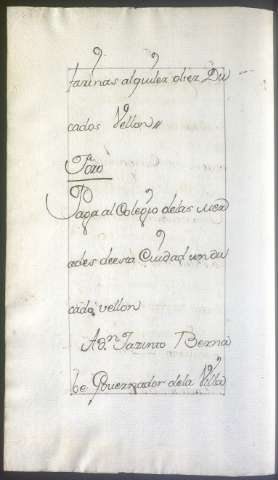 tarinas alquiler diez Du
cados Vellon //
Foro
Paga al Colegio delas Mer
ades deesta Ciudad un du
cado vellon
A Dⁿ Jazinto Berna
be Governador dela Villa